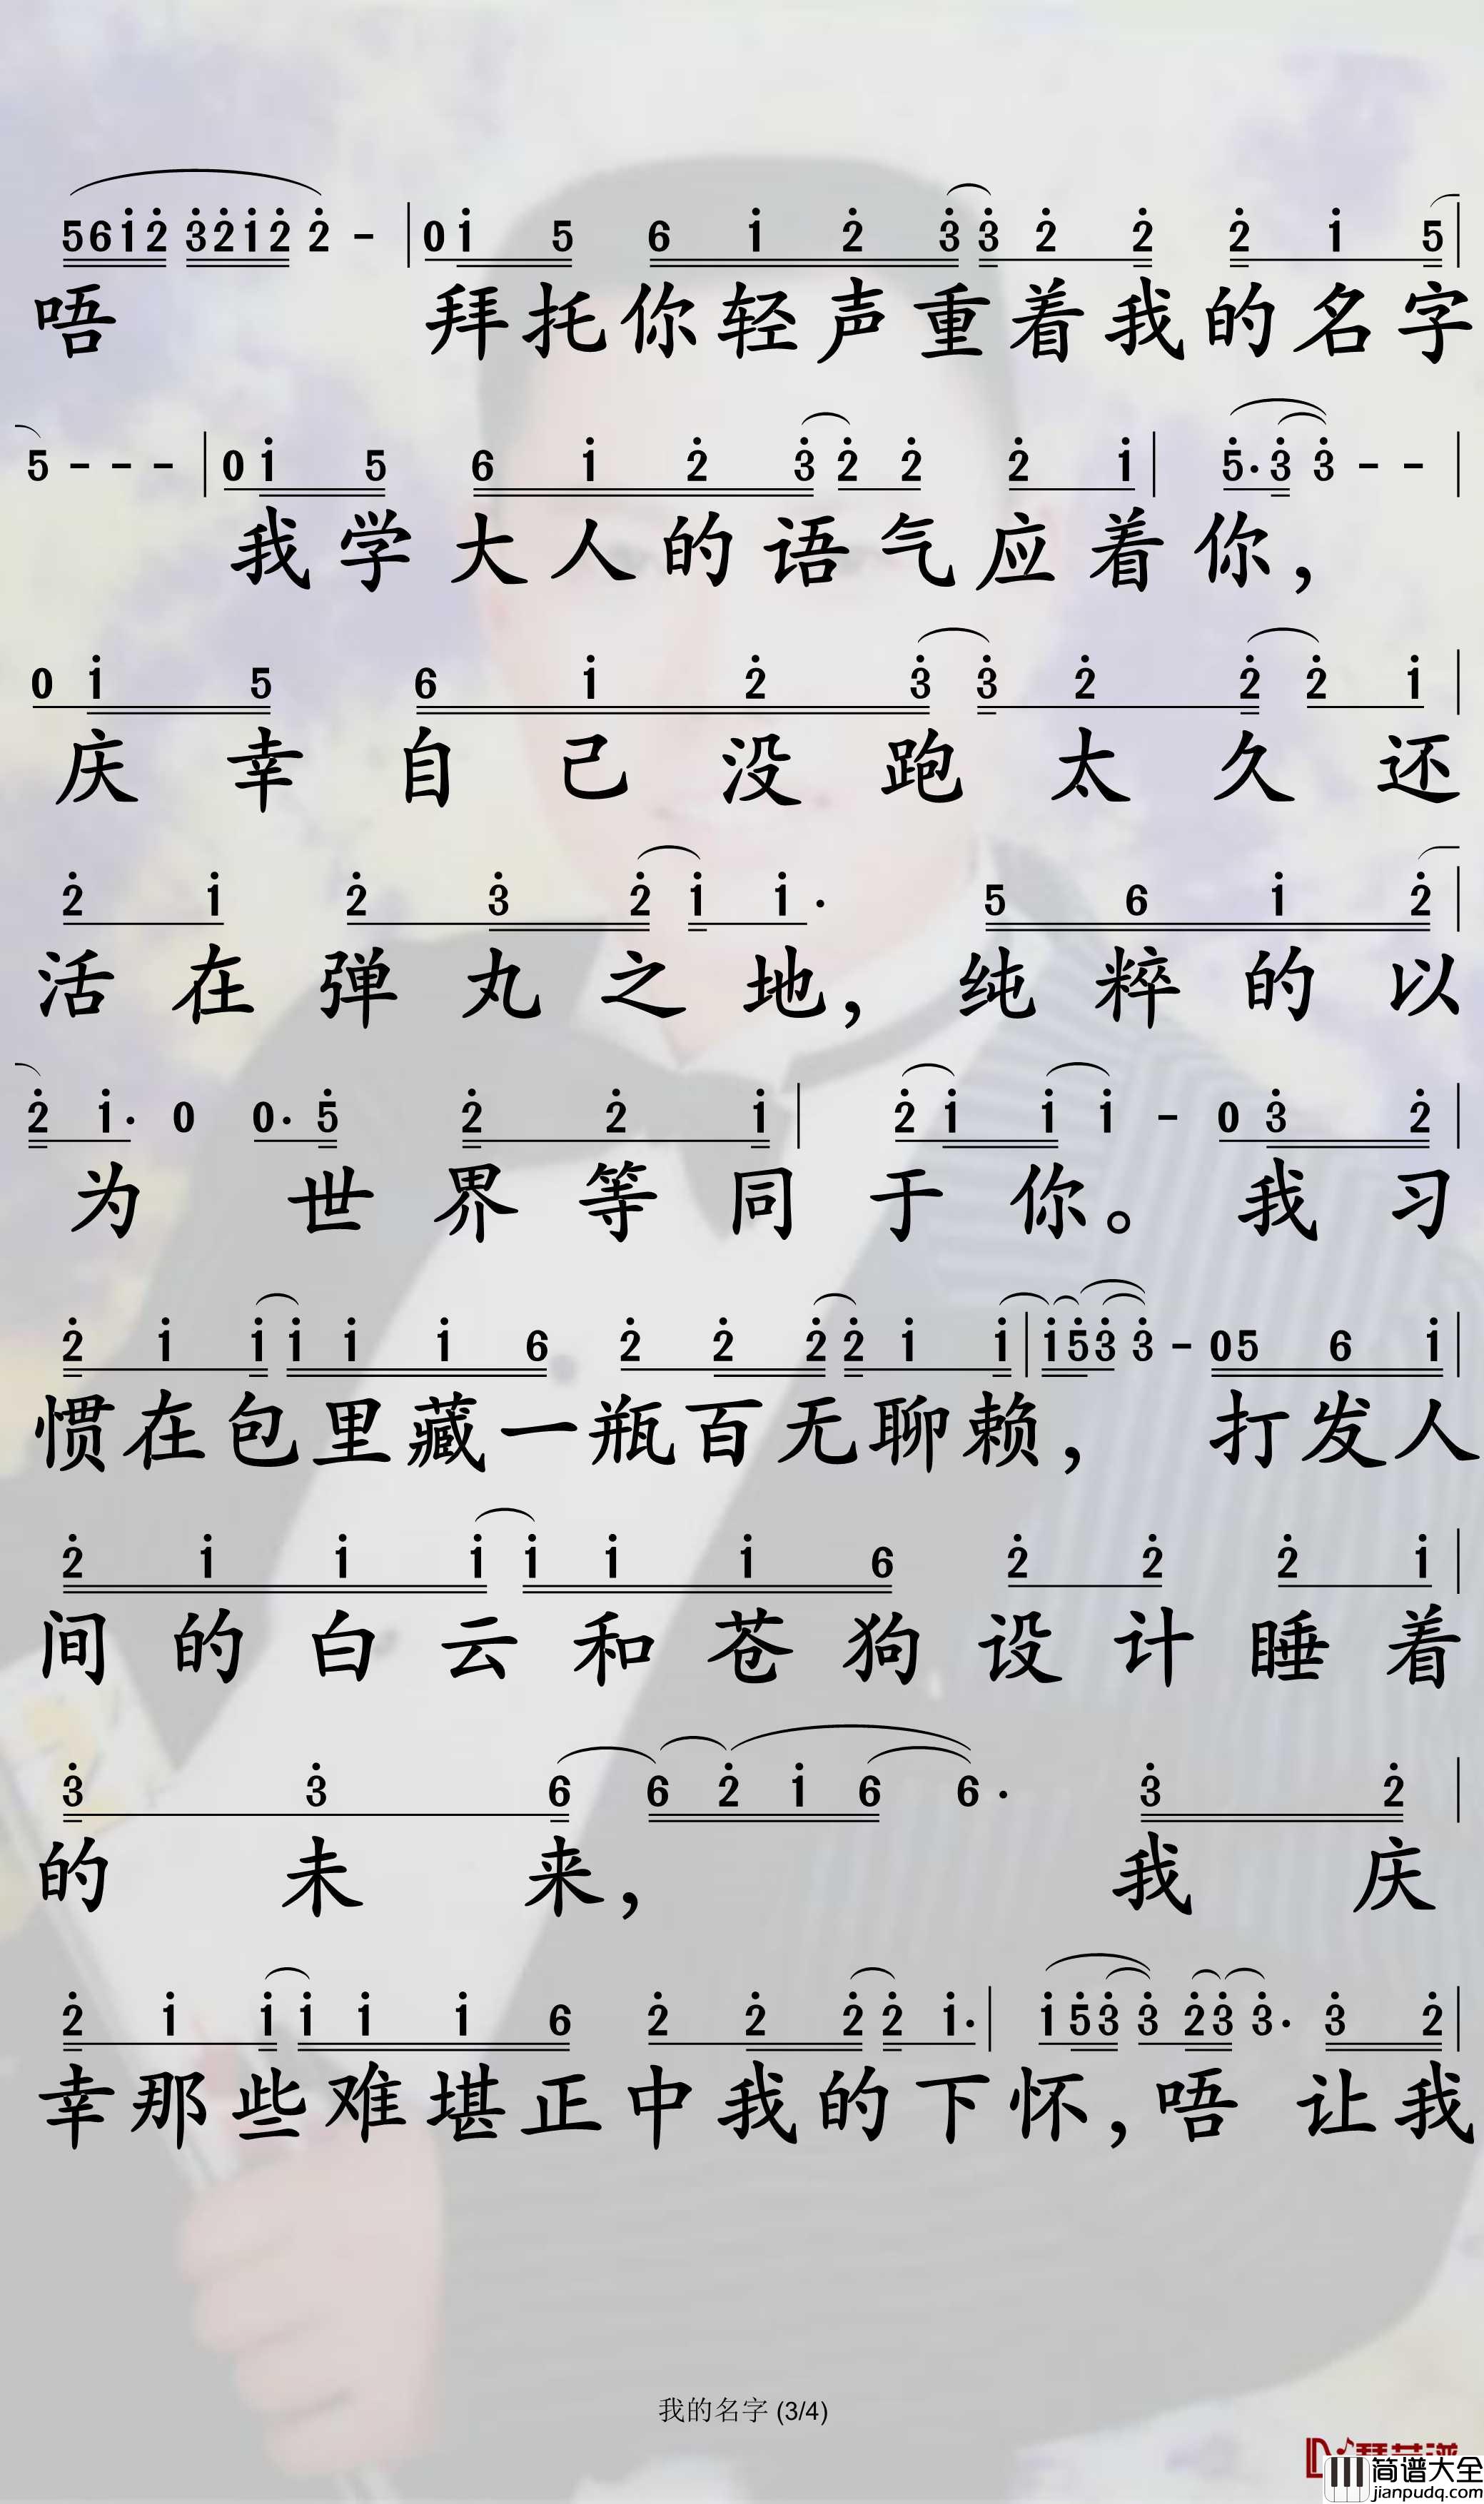 5612 32122 - 01 5 6 1 2 3 3 2 2 2 1 5
唔 拜托你轻声重着我的名字
5 - - - 01 5 6 1 2 3 2 2 2 1 5·3 3 - -
我学大人的语气应着你，
0 1 5 6 1 2 3 3 2 2 2 1
庆幸自己没跑太久还
2 1 2 3 2 1 1· 5 6 1 2
活在弹丸之地，纯粹的以
2 1· 0 0· 5 2 2 1 2 1 1 1 - 0 3 2
为 世界等同于你。我习
2 1 1 1 1 1 6 2 2 2 2 1 1 1 5 3 3 - 0 5 6 1
惯在包里藏一瓶百无聊赖，打发人
2 1 1 1 1 1 1 6 2 2 2 1
间的白云和苍狗设计睡着
3 3 6 6 2 1 6 6· 3 2
的未来，我庆
2 1 1 1 1 1 6 2 2 2 2 1· 1 5 3 3 2 3 3· 3 2
幸那些难堪正中我的下怀，唔 让我
我的名字 (3/4)
简谱大全
jianpudq.com